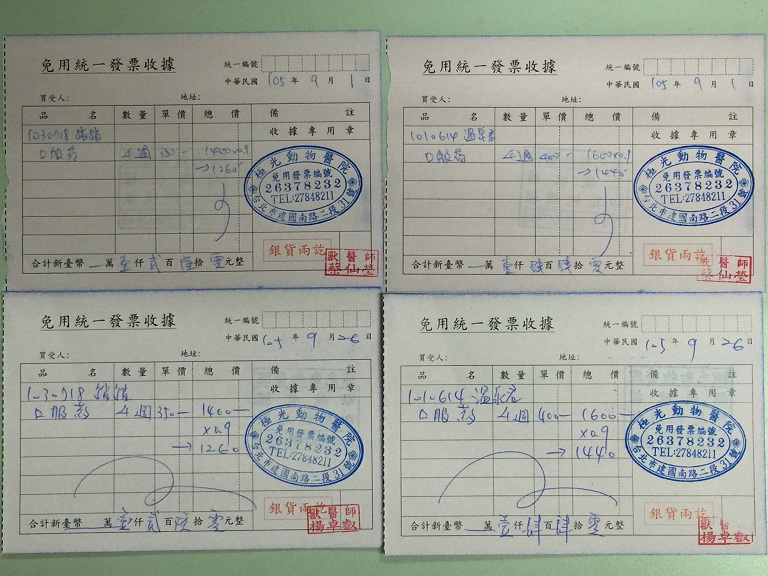 免用統一發票收據
統一編號
中華民國 105 年 9 月 1 日
買受人： 地址：
品 名 數量 單價 總價 備 註
1030718
收據專用章
口服药 4週 350- 1400x0.9
→1260
極光動物醫院
免用發票編號
26378232
TEL:27848211
台北市建國南路二段31號
銀貨兩訖
獸醫師
蔡仙瑩
合計新臺幣 萬 壹 仟 貳 百 陸 拾 零 元整
免用統一發票收據
統一編號
中華民國 105 年 9 月 1 日
買受人： 地址：
品 名 數量 單價 總價 備 註
1010614 溫
收據專用章
口服药 4週 400- 1600x0.9
→1440
極光動物醫院
免用發票編號
26378232
TEL:27848211
台北市建國南路二段31號
銀貨兩訖
獸醫師
蔡仙瑩
合計新臺幣 萬 壹 仟 肆 百 肆 拾 零 元整
免用統一發票收據
統一編號
中華民國 105 年 9 月 26 日
買受人： 地址：
品 名 數量 單價 總價 備 註
1030718
收據專用章
口服葯 4週 350- 1400-
x0.9
→1260
極光動物醫院
免用發票編號
26378232
TEL:27848211
台北市建國南路二段31號
銀貨兩訖
獸醫師
楊卓叡
合計新臺幣 萬 壹 仟 貳 百 陸 拾 零 元整
免用統一發票收據
統一編號
中華民國 105 年 9 月 26 日
買受人： 地址：
品 名 數量 單價 總價 備 註
1010614 溫
收據專用章
口服葯 4週 400- 1600-
x0.9
→1440
極光動物醫院
免用發票編號
26378232
TEL:27848211
台北市建國南路二段31號
銀貨兩訖
獸醫
楊卓叡
合計新臺幣 萬 壹 仟 肆 百 肆 拾 零 元整